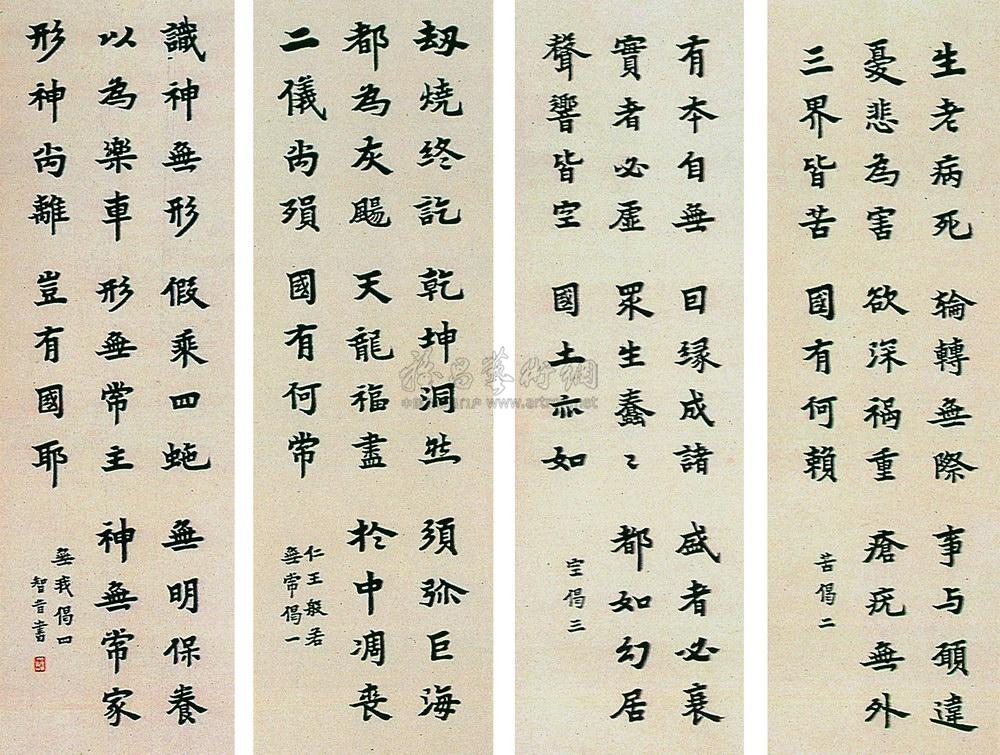 生老病死 輪轉無際 事与願違
憂悲為害 欲深禍重 瘡疣無外
三界皆苦 國有何賴
苦偈二
有本自無 因緣成諸 盛者必衰
實者必虛 眾生蠢〻 都如幻居
聲響皆空 國土亦如
空偈三
劫燒終訖 乾坤洞然 須弥巨海
都為灰颺 天龍福盡 於中凋喪
二儀尚殞 國有何常
仁王般若
無常偈一
識神無形 假乘四虵 無明保養
以為樂車 形無常主 神無常家
形神尚離 豈有國耶
無我偈四
智音書
雅昌藝術網
www.artron.net